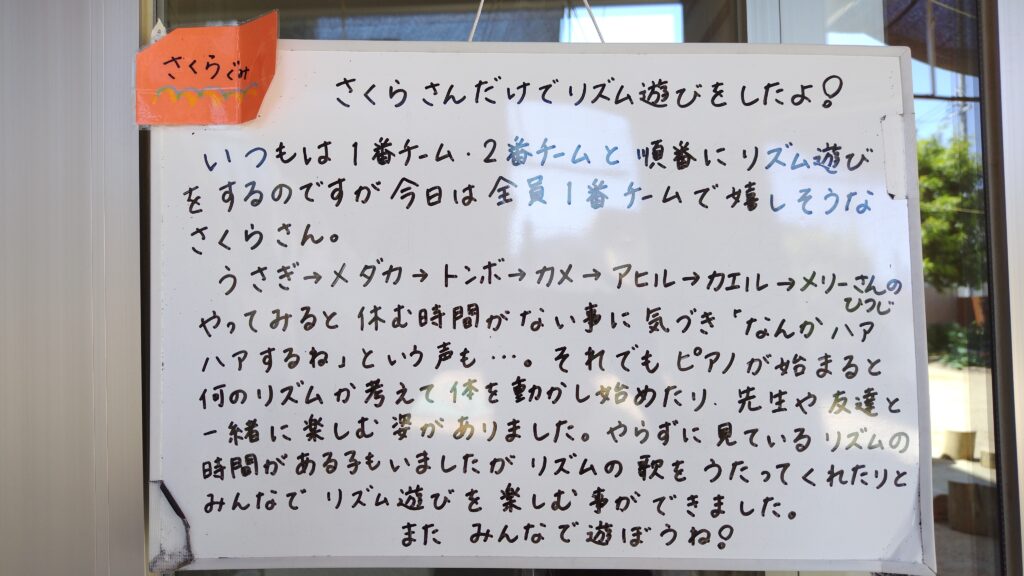 さくらぐみ
さくらさんだけでリズム遊びをしたよ!
いつもは1番チーム・2番チームと順番にリズム遊び
をするのですが今日は全員1番チームで嬉しそうな
さくらさん。
うさぎ→メダカ→トンボ→カメ→アヒル→カエル→メリーさんの
ひつじ
やってみると休む時間がない事に気づき「なんかハア
ハアするね」という声も…。それでもピアノが始まると
何のリズムか考えて体を動かし始めたり、先生や友達と
一緒に楽しむ姿がありました。やらずに見ているリズムの
時間がある子もいましたがリズムの歌をうたってくれたりと
みんなでリズム遊びを楽しむ事ができました。
またみんなで遊ぼうね!